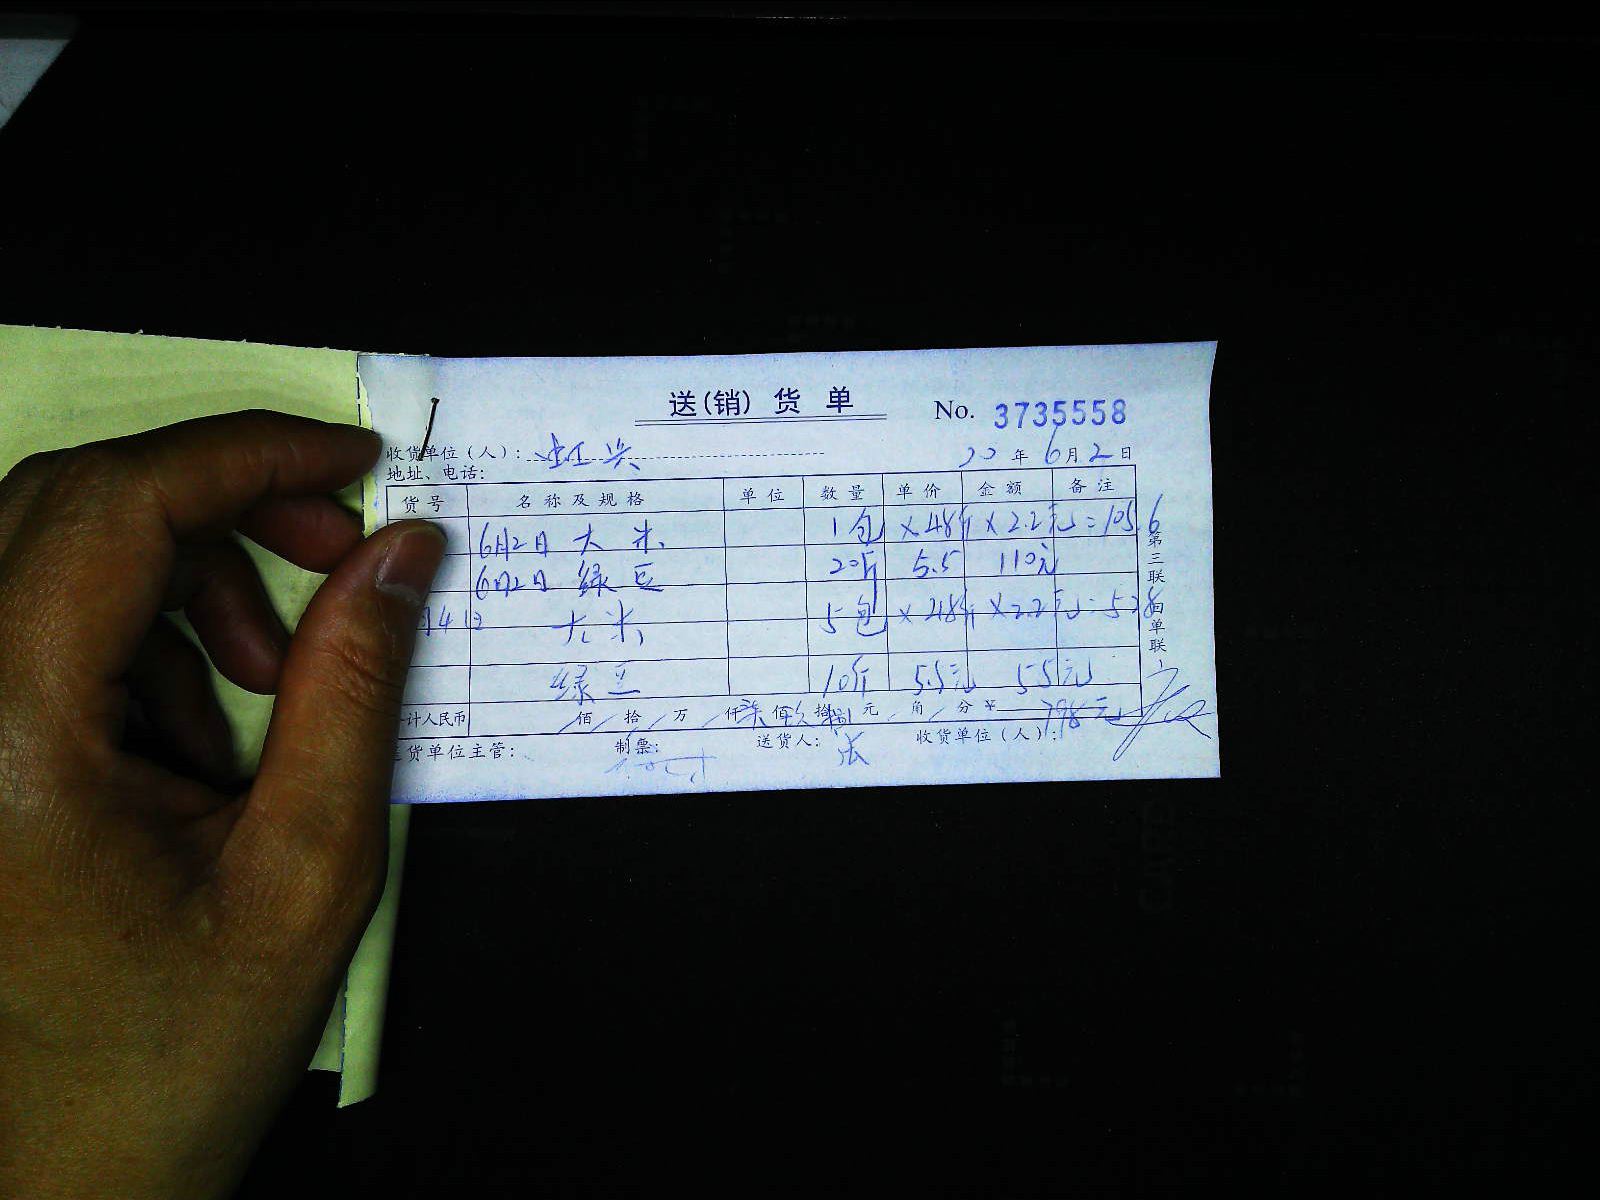 送(销) 货 单
No. 3735558
收货单位(人): 虹兴
年 6月2日
地址、电话:
货号 名称及规格 单位 数量 单价 金额 备注
6月2日 大米 1包 ×48斤 ×2.2元=105.6
6月2日 绿豆 20斤 5.5 110元
月4日 大米 5包 ×48斤 ×2.2元=528
绿豆 10斤 5.5元 55元
计人民币 / 佰 / 拾 / 万 / 仟 柒 佰 玖 拾 捌 元 / 角 / 分 ¥ 798元
货单位主管: 制票: 送货人: 张 收货单位(人):
第三联 回单联